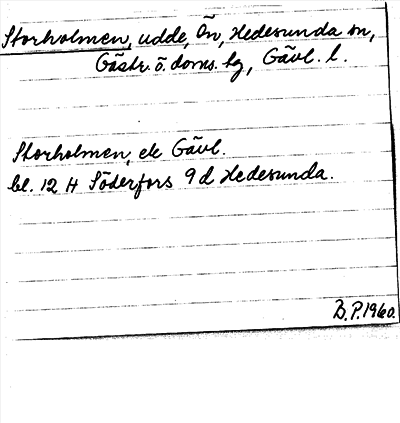 Storholmen, udde, Ön, Hedesunda sn,
Gästr. ö. doms. tg, Gävl. l.
Storholmen, ek Gävl.
bl. 12 H Söderfors 9 d Hedesunda.
B.P. 1960.